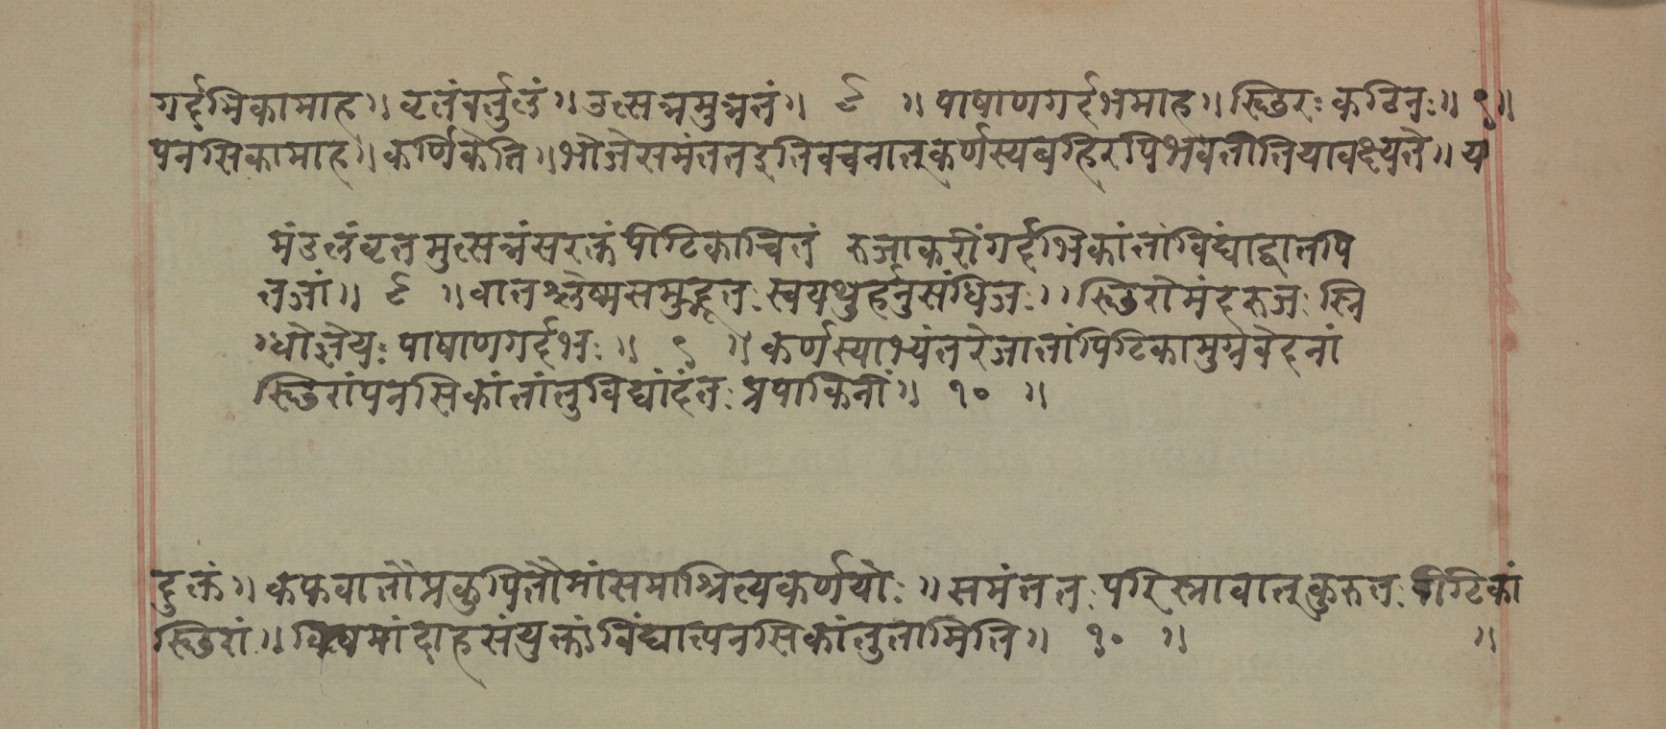 गर्द्दभिकामाह॥ वृतंवर्त्तुलं॥ उत्सन्नमुन्नतं॥ ८ ॥ पाषाणगर्द्दभमाह॥ स्थिरः कठिनः॥ ९॥
पनसिकामाह॥ कर्णिकेति॥ भोजेसमंततइतिवचनात्कर्णस्यबहिरपिभवतीतियावक्ष्यते॥ य
मंडलंवृतमुत्सन्नंसरक्तंपीटिकाचितं रुजाकरींगर्द्दभिकांतांविंद्याद्वातपि
तजां॥ ८ ॥ वातश्लेष्मसमुद्भूतः स्वयथुर्हनुसंधिजः॥ स्थिरोमंदरुजः स्नि
ग्धोज्ञेयः पाषाणगर्द्दभः॥ ९ ॥ कर्णस्याभ्यंतरेजातांपिटिकामुग्रवेदनां
स्थिरांपनसिकांतांतुविद्यांदंतः प्रपाकिनीं॥ १० ॥
दुक्तं॥ कफवातौप्रकुपितौमांसमाश्रित्यकर्णयोः॥ समंततः परिस्रावात्कुरुतः पीटिकां
स्थिरां॥ मांदाहसंयुक्तांविंद्यात्पनसिकांतुतामिति॥ १० ॥ ॥